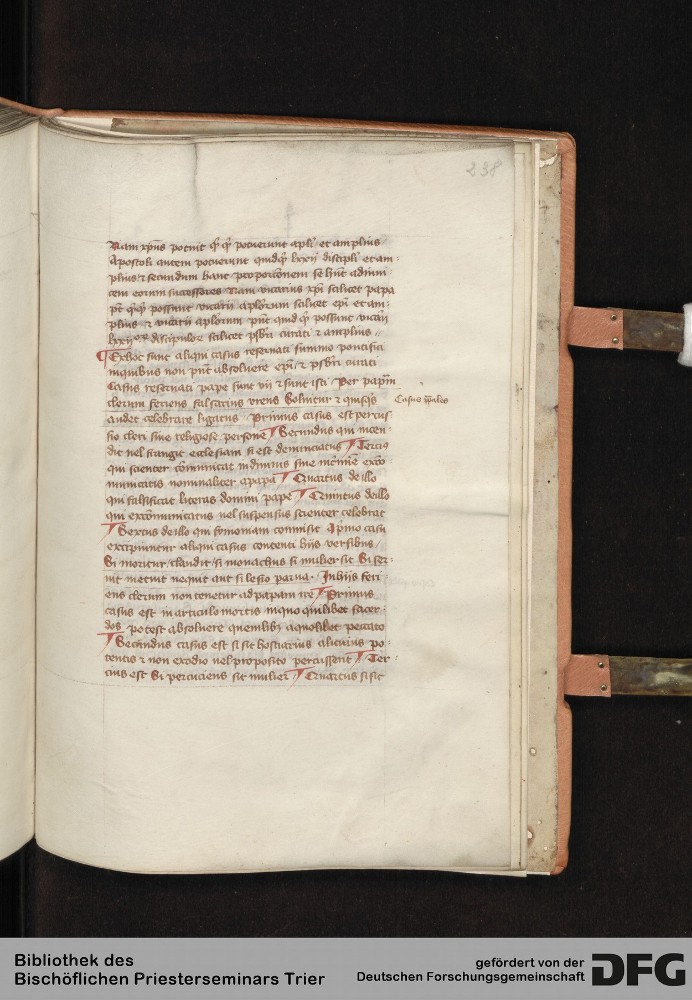 238
Nam xp̄us potuit q̈ q̇ potuerunt apl̄i et amplius /
Apostoli autem potuerunt quidq̇ lxxij discipl̄i et am-
plius / et secundum hanc proporcōnem se hn̄t adinui-
cem eorum successores Nam vicarius xp̄i scilicet papa
pt̄ q̇q̇ possunt vicarij aplōrum scilicet ep̄i et am-
plius · et vicarij aplōrum pn̄t quid q̇ possunt vicarij
lxxijorum discipulor scilicet psbr̄i curati et amplius //
¶ Ex hoc sunt aliqui casus reseruati summo pontifici
in quibus non pn̄t absoluere ep̄i / et psbr̄i curati
Casus reseruati pape sunt vij et sunt isti · Per papam
clerum feriens falsarius vrens Soluitur et quisq̇s
audet celebrare ligatus · Primus casus est percus-
sio cleri siue religiose persone ¶ Secundus qui incen-
dit uel frangit ecclesiam si est denunciatus ¶ Tercius
qui scienter cōmunicat in diuinis siue in crīmīe exco-
municatis nominaliter a papa ¶ Quartus de illo
qui falsificat literas domini pape ¶ Quintus de illo
qui excōmunicatus uel suspensus scienter celebrat
¶ Sextus de illo qui symoniam commisit A primo casu
excipiuntur aliqui casus contenti hijs versibus /
Si moritur / claudit / si monachus si mulier sit Si ser-
uit metuit nequit aut si lesio parua · In hijs feri-
ens clerum non tenetur ad papam ire ¶ Primus
casus est in articulo mortis in quo quilibet sacer-
dos potest absoluere quemlibet a quolibet peccato
¶ Secundus casus est si sit hostiarius alicuius po-
tentis et non ex odio uel proposito percusserit ¶ Ter-
cius est Si percuciens sit mulier ¶ Quartus si sit
Casus papales
Bibliothek des
Bischöflichen Priesterseminars Trier
gefördert von der
Deutschen Forschungsgemeinschaft
DFG